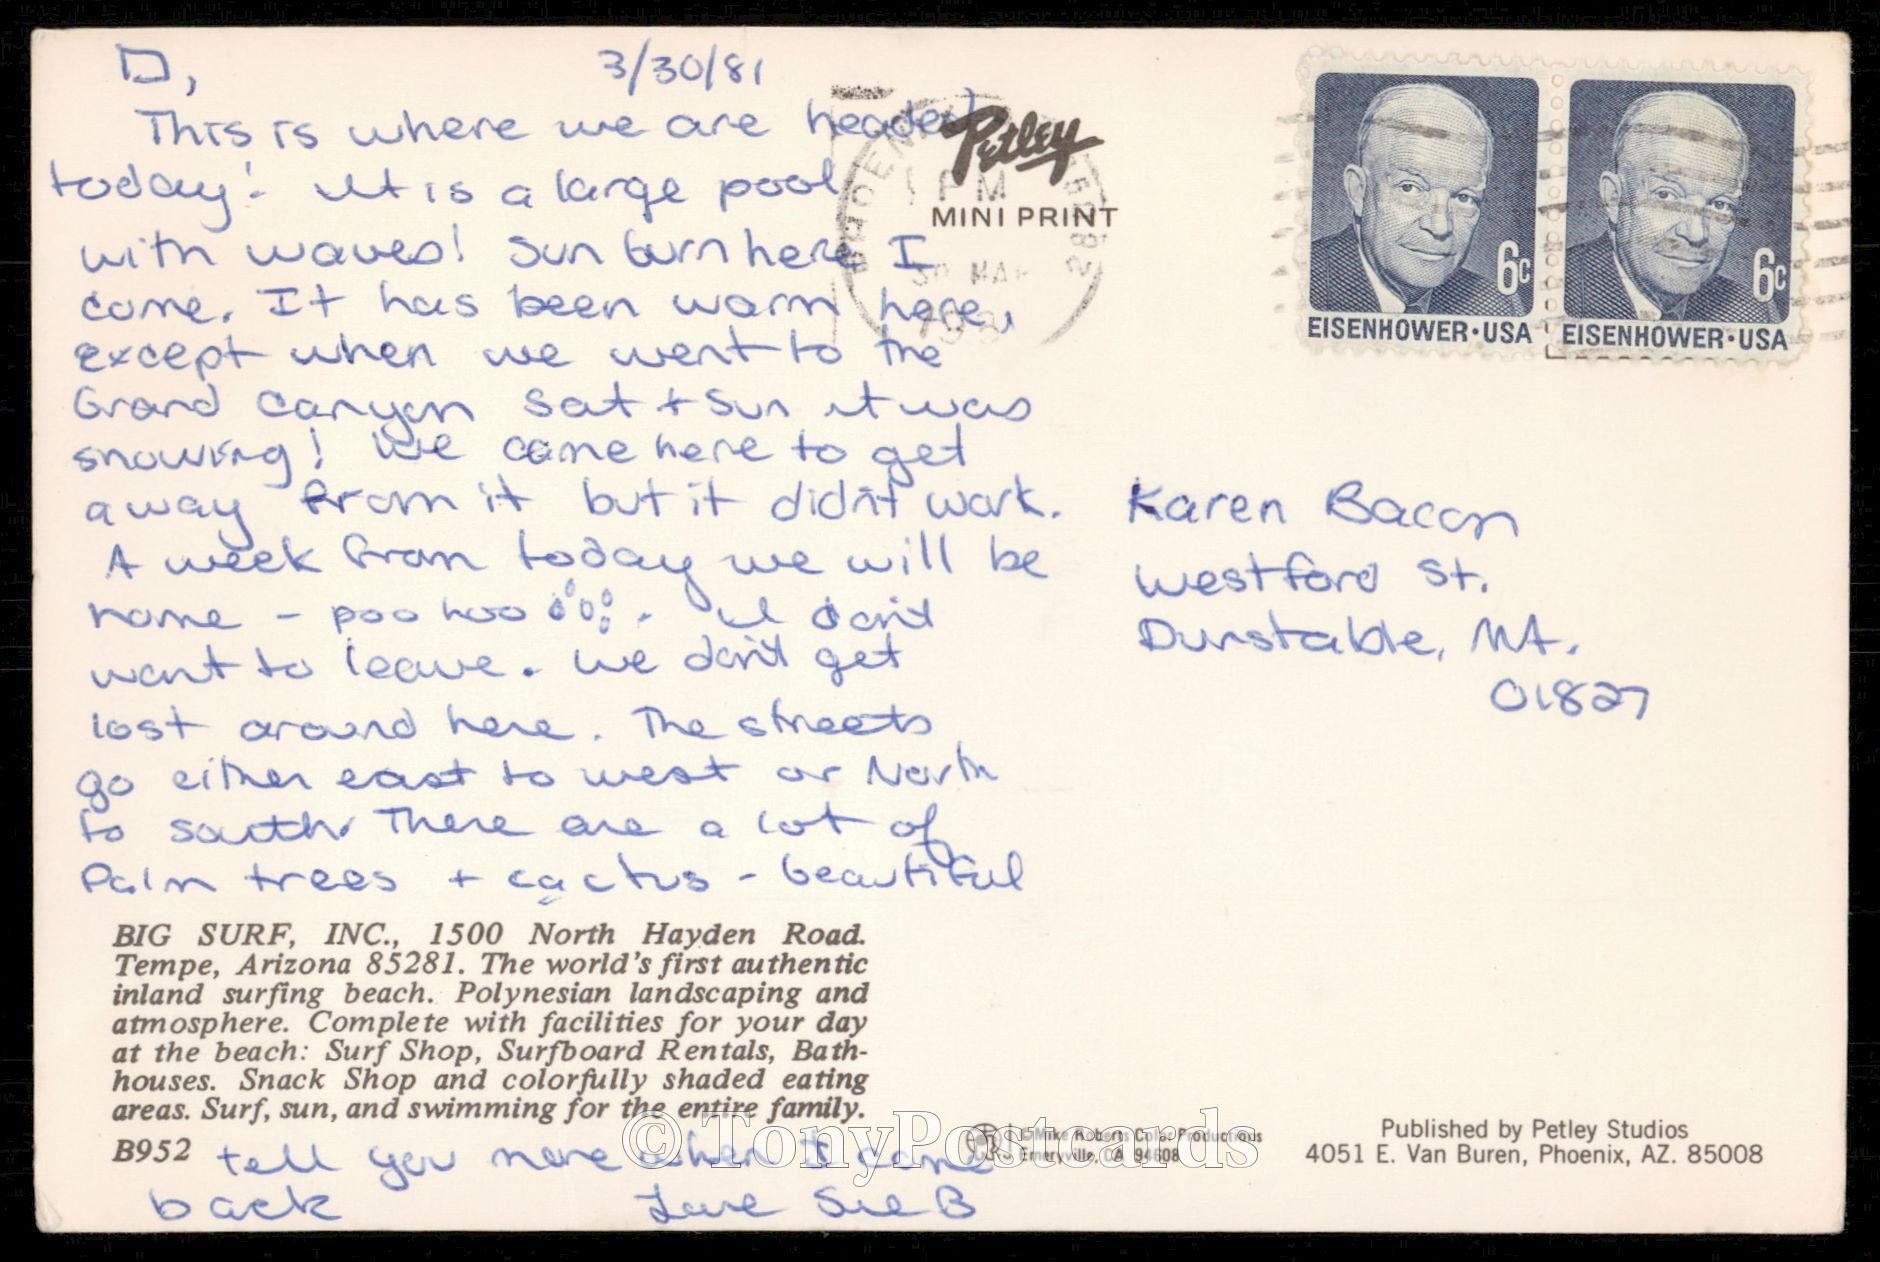 D, 3/30/81
This is where we are headed
today! It is a large pool
with waves! Sun burn here I
come. It has been warm here,
except when we went to the
Grand Canyon Sat + Sun it was
snowing! We came here to get
away from it but it didn't work.
A week from today we will be
home - poo hoo. I don't
want to leave. We don't get
lost around here. The streets
go either east to west or North
to south. There are a lot of
Palm trees + cactus - beautiful
BIG SURF, INC., 1500 North Hayden Road.
Tempe, Arizona 85281. The world's first authentic
inland surfing beach. Polynesian landscaping and
atmosphere. Complete with facilities for your day
at the beach: Surf Shop, Surfboard Rentals, Bath-
houses. Snack Shop and colorfully shaded eating
areas. Surf, sun, and swimming for the entire family.
B952
tell you more when I come
back Love Sue B
Petley
MINI PRINT
PHOENIX
PM
30 MAR
1981
6c 6c
EISENHOWER·USA EISENHOWER·USA
Karen Bacon
Westford St.
Dunstable, MA.
01827
©TonyPostcards
Mike Roberts Color Productions
Emeryville, CA 94608
Published by Petley Studios
4051 E. Van Buren, Phoenix, AZ. 85008